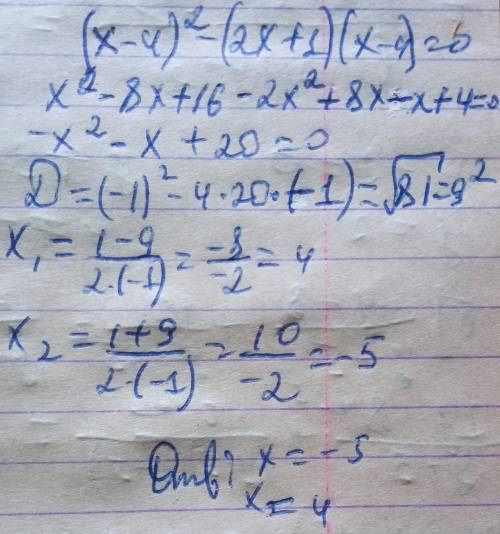 (x-4)²-(2x+1)(x-4)=0
x²-8x+16-2x²+8x-x+4=0
-x²-x+20=0
D=(-1)²-4·20·(-1)=√81=9²
x₁=(1-9)/(2·(-1))=(-8)/(-2)=4
x₂=(1+9)/(2·(-1))=10/(-2)=-5
Отв: x=-5
x=4